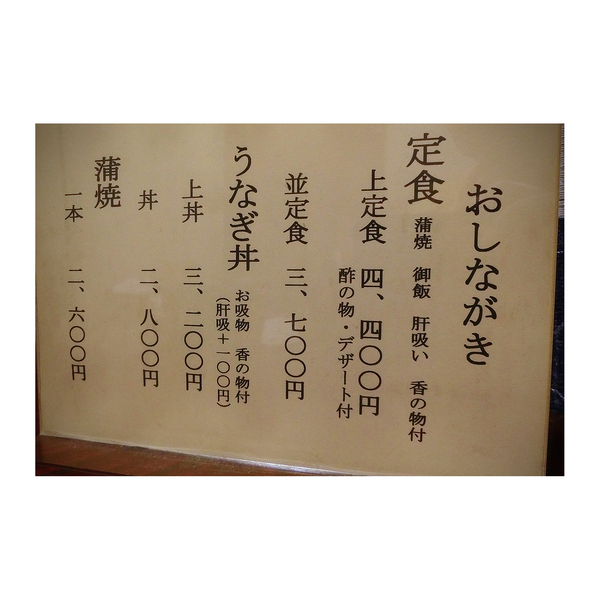 おしながき
定食 蒲焼 御飯 肝吸い 香の物付
上定食 四、四〇〇円
酢の物・デザート付
並定食 三、七〇〇円
うなぎ丼 お吸物 香の物付
(肝吸+一〇〇円)
上丼 三、二〇〇円
丼 二、八〇〇円
蒲焼
一本 二、六〇〇円